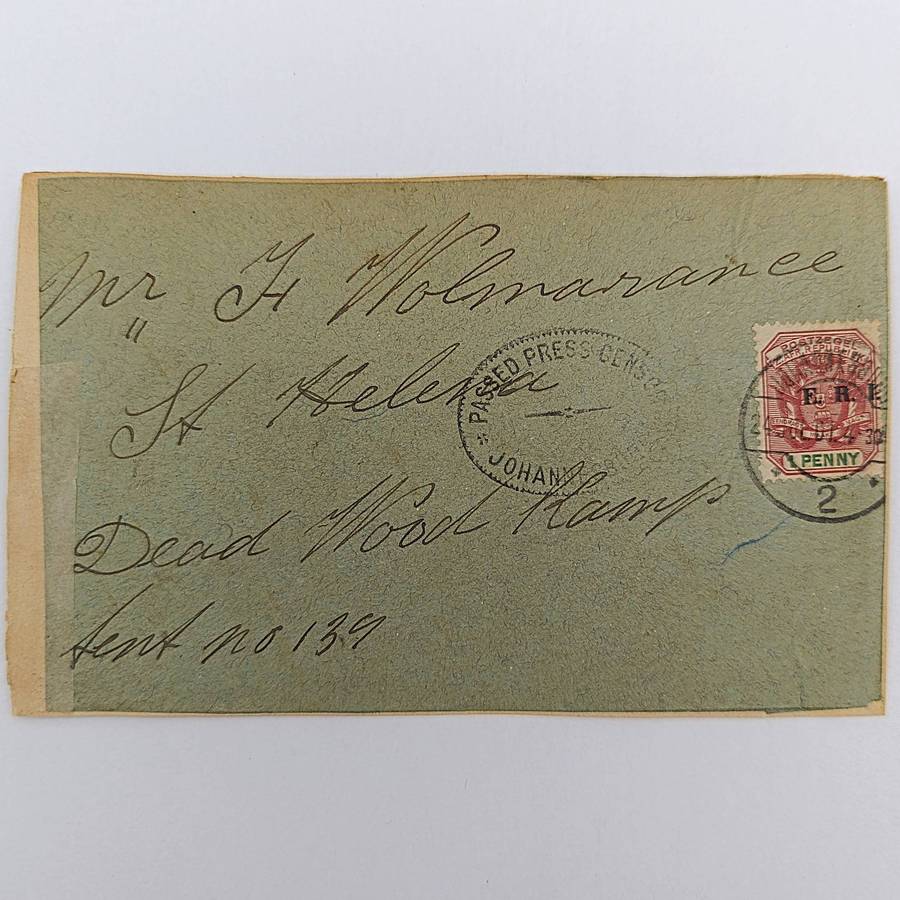 Mr H Wolmarance
"
St Helena
Dead Wood Kamp
tent no 139
PASSED PRESS CENSOR
JOHANNESBURG
POSTZEGEL
E. R. I
1 PENNY
2